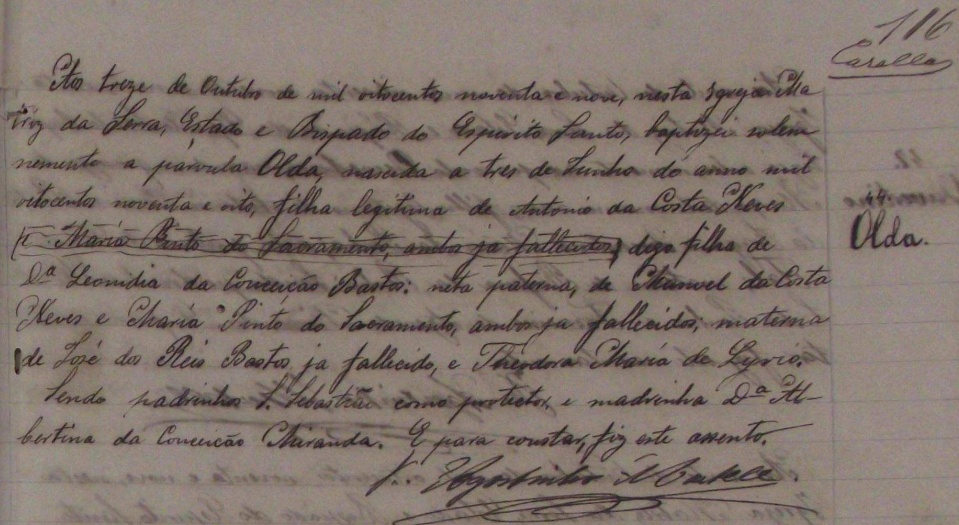 116
Aos treze de Outubro de mil oitocentos noventa e nove, nesta Igreja Ma
triz da Serra, Estado e Bispado do Espirito Santo, baptizei solem
nemente a párvula Olda, nascida a tres de Junho do anno mil
oitocentos noventa e oito, filha legitima de Antonio da Costa Neves
(E Maria Pinto do Sacramento, ambos ja fallecidos) digo filha de
Dª Leonidia da Conceição Bastos: neta paterna, de Manoel da Costa
Neves e Maria Pinto do Sacramento, ambos ja fallecidos; materna
de José dos Reis Bastos ja fallecido, e Theodora Maria de Lyrio.
Sendo padrinhos S. Sebastião como protector, e madrinha Dª Al-
bertina da Conceição Miranda. E para constar, fiz este assento.
Olda.